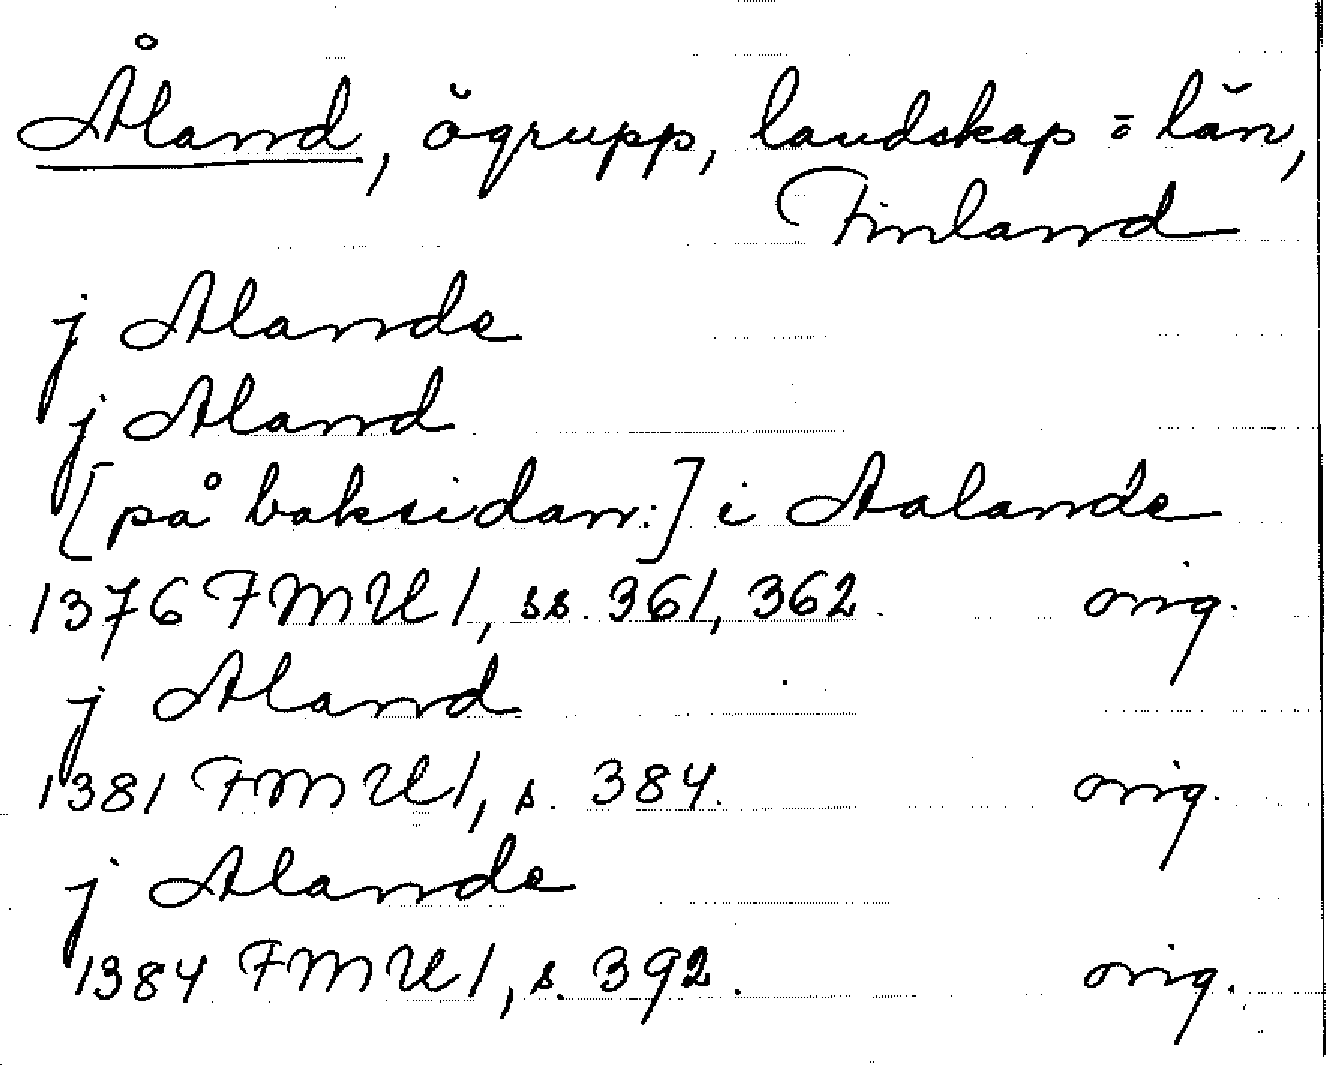 Åland, ögrupp, landskap = län,
Finland
j Alande
j Aland
[på baksidan:] i Aalande
1376 FMU 1, ss. 361, 362. orig.
j Aland
1381 FMU 1, s. 384. orig.
j Alande
1384 FMU 1, s. 392. orig.